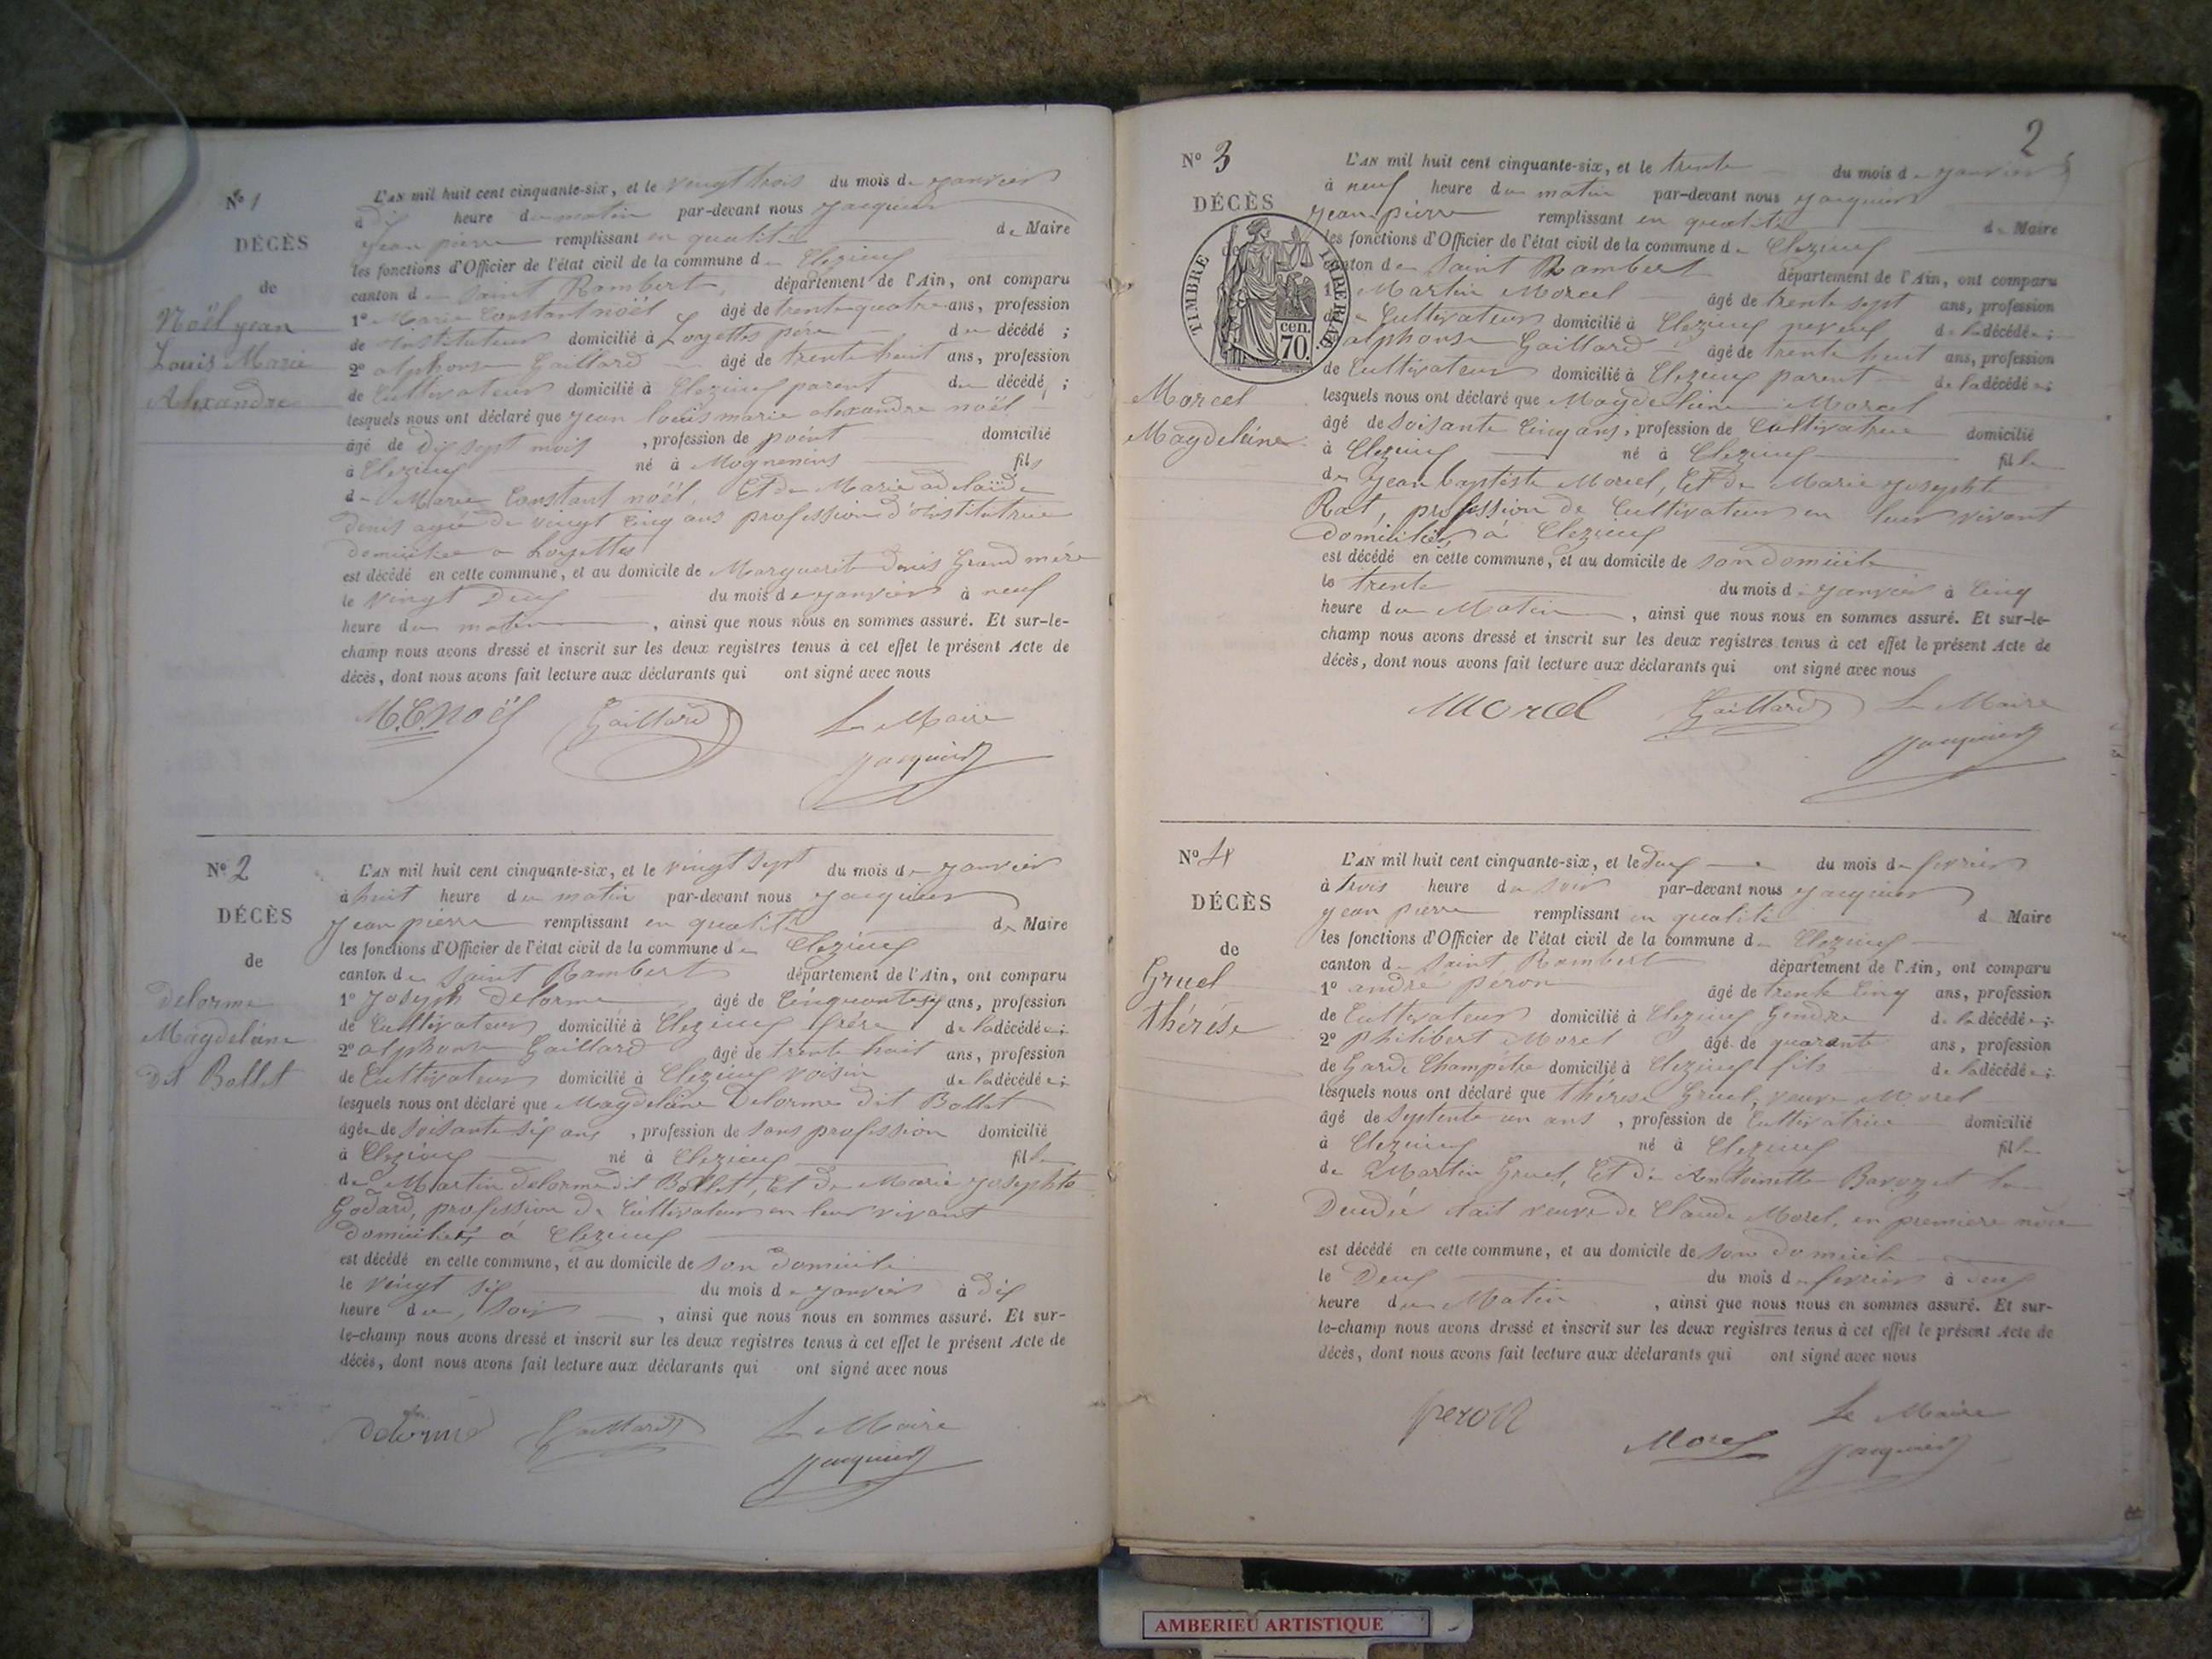 No 1
DÉCÈS
de
Noël jean
Louis Marie
Alexandre
L'AN mil huit cent cinquante-six, et le vingt trois du mois de janvier
à dix heure du matin par-devant nous jacquier
jean pierre remplissant en qualité de Maire
les fonctions d'Officier de l'état civil de la commune de Clezieu
canton de Saint Rambert, département de l'Ain, ont comparu
1º Marie Constant noël âgé de trente quatre ans, profession
de instituteur domicilié à Loyettes père du décédé ;
2º alphonse Gaillard âgé de trente huit ans, profession
de Cultivateur domicilié à Clezieu parent du décédé ;
lesquels nous ont déclaré que jean louis marie alexandre noël
âgé de dix sept mois , profession de point domicilié
à Clezieu né à fils
de Marie Constant noël, Et de Marie adelaïde
denis agée de vingt cinq ans profession d'institutrice
domiciliée a Loyettes
est décédé en cette commune, et au domicile de Marguerite denis Grand mère
le vingt Deux du mois de janvier à neuf
heure du matin , ainsi que nous nous en sommes assuré. Et sur-le-
champ nous avons dressé et inscrit sur les deux registres tenus à cet effet le présent Acte de
décès, dont nous avons fait lecture aux déclarants qui ont signé avec nous
M.C. noël Gaillard Le Maire
jacquier
No 2
DÉCÈS
de
Delorme
Magdeleine
Dit Bollet
L'AN mil huit cent cinquante-six, et le vingt sept du mois de janvier
à huit heure du matin par-devant nous jacquier
jean pierre remplissant en qualité de Maire
les fonctions d'Officier de l'état civil de la commune de Clezieu
canton de Saint Rambert département de l'Ain, ont comparu
1º joseph Delorme âgé de Cinquante six ans, profession
de Cultivateur domicilié à Clezieu frère de la décédée ;
2º alphonse Gaillard âgé de trente huit ans, profession
de Cultivateur domicilié à Clezieu voisin de la décédée ;
lesquels nous ont déclaré que Magdeleine Delorme dit Bollet
âgée de soisante six ans , profession de sans profession domicilié
à Clezieu né à Clezieu fille
de Martin delorme dit Bollet, Et de Marie josephte
Godard, profession de Cultivateur en leur vivant
domiciliés à Clezieu
est décédé en cette commune, et au domicile de son domicile
le vingt six du mois de janvier à dix
heure du soir , ainsi que nous nous en sommes assuré. Et sur-
le-champ nous avons dressé et inscrit sur les deux registres tenus à cet effet le présent Acte de
décès, dont nous avons fait lecture aux déclarants qui ont signé avec nous
delorme Gaillard Le Maire
jacquier
2
No 3
DÉCÈS
de
TIMBRE IMPERIAL
cen.
70.
Morcel
Magdeleine
L'AN mil huit cent cinquante-six, et le trente du mois de janvier
à neuf heure du matin par-devant nous jacquier
jean pierre remplissant en qualité de Maire
les fonctions d'Officier de l'état civil de la commune de Clezieu
canton de Saint Rambert département de l'Ain, ont comparu
1º Martin Morcel âgé de trente sept ans, profession
de Cultivateur domicilié à Clezieu neveu de la décédée ;
alphonse Gaillard âgé de trente huit ans, profession
de Cultivateur domicilié à Clezieu parent de la décédée ;
lesquels nous ont déclaré que Magdeleine Morcel
âgé de soisante Cinq ans, profession de Cultivatrice domicilié
à Clezieu né à Clezieu fille
de jean baptiste Morcel, Et de Marie josephte
Rat, profession de Cultivateur en leur vivant
domiciliés à Clezieu
est décédé en cette commune, et au domicile de son domicile
le trente du mois de janvier à Cinq
heure du Matin , ainsi que nous nous en sommes assuré. Et sur-le-
champ nous avons dressé et inscrit sur les deux registres tenus à cet effet le présent Acte de
décès, dont nous avons fait lecture aux déclarants qui ont signé avec nous
Morcel Gaillard Le Maire
jacquier
No 4
DÉCÈS
de
Gruel
thérèse
L'AN mil huit cent cinquante-six, et le deux du mois de fevrier
à trois heure du soir par-devant nous jacquier
jean pierre remplissant en qualité de Maire
les fonctions d'Officier de l'état civil de la commune de Clezieu
canton de Saint Rambert département de l'Ain, ont comparu
1º andré peron âgé de trente Cinq ans, profession
de Cultivateur domicilié à Clezieu Gendre de la décédée ;
2º philibert Morel âgé de quarante ans, profession
de Garde Champêtre domicilié à Clezieu fils de la décédée ;
lesquels nous ont déclaré que thérèse Gruel, veuve Morel
âgé de septente un ans , profession de Cultivatrice domicilié
à Clezieu né à Clezieu fille
de Martin Gruel, Et de Antoinette la
Decédée était veuve de Claude Morel, en premiere nôce
est décédé en cette commune, et au domicile de son domicile
le Deux du mois de fevrier à
heure du Matin , ainsi que nous nous en sommes assuré. Et sur-
le-champ nous avons dressé et inscrit sur les deux registres tenus à cet effet le présent Acte de
décès, dont nous avons fait lecture aux déclarants qui ont signé avec nous
peron Morel Le Maire
jacquier
AMBERIEU ARTISTIQUE